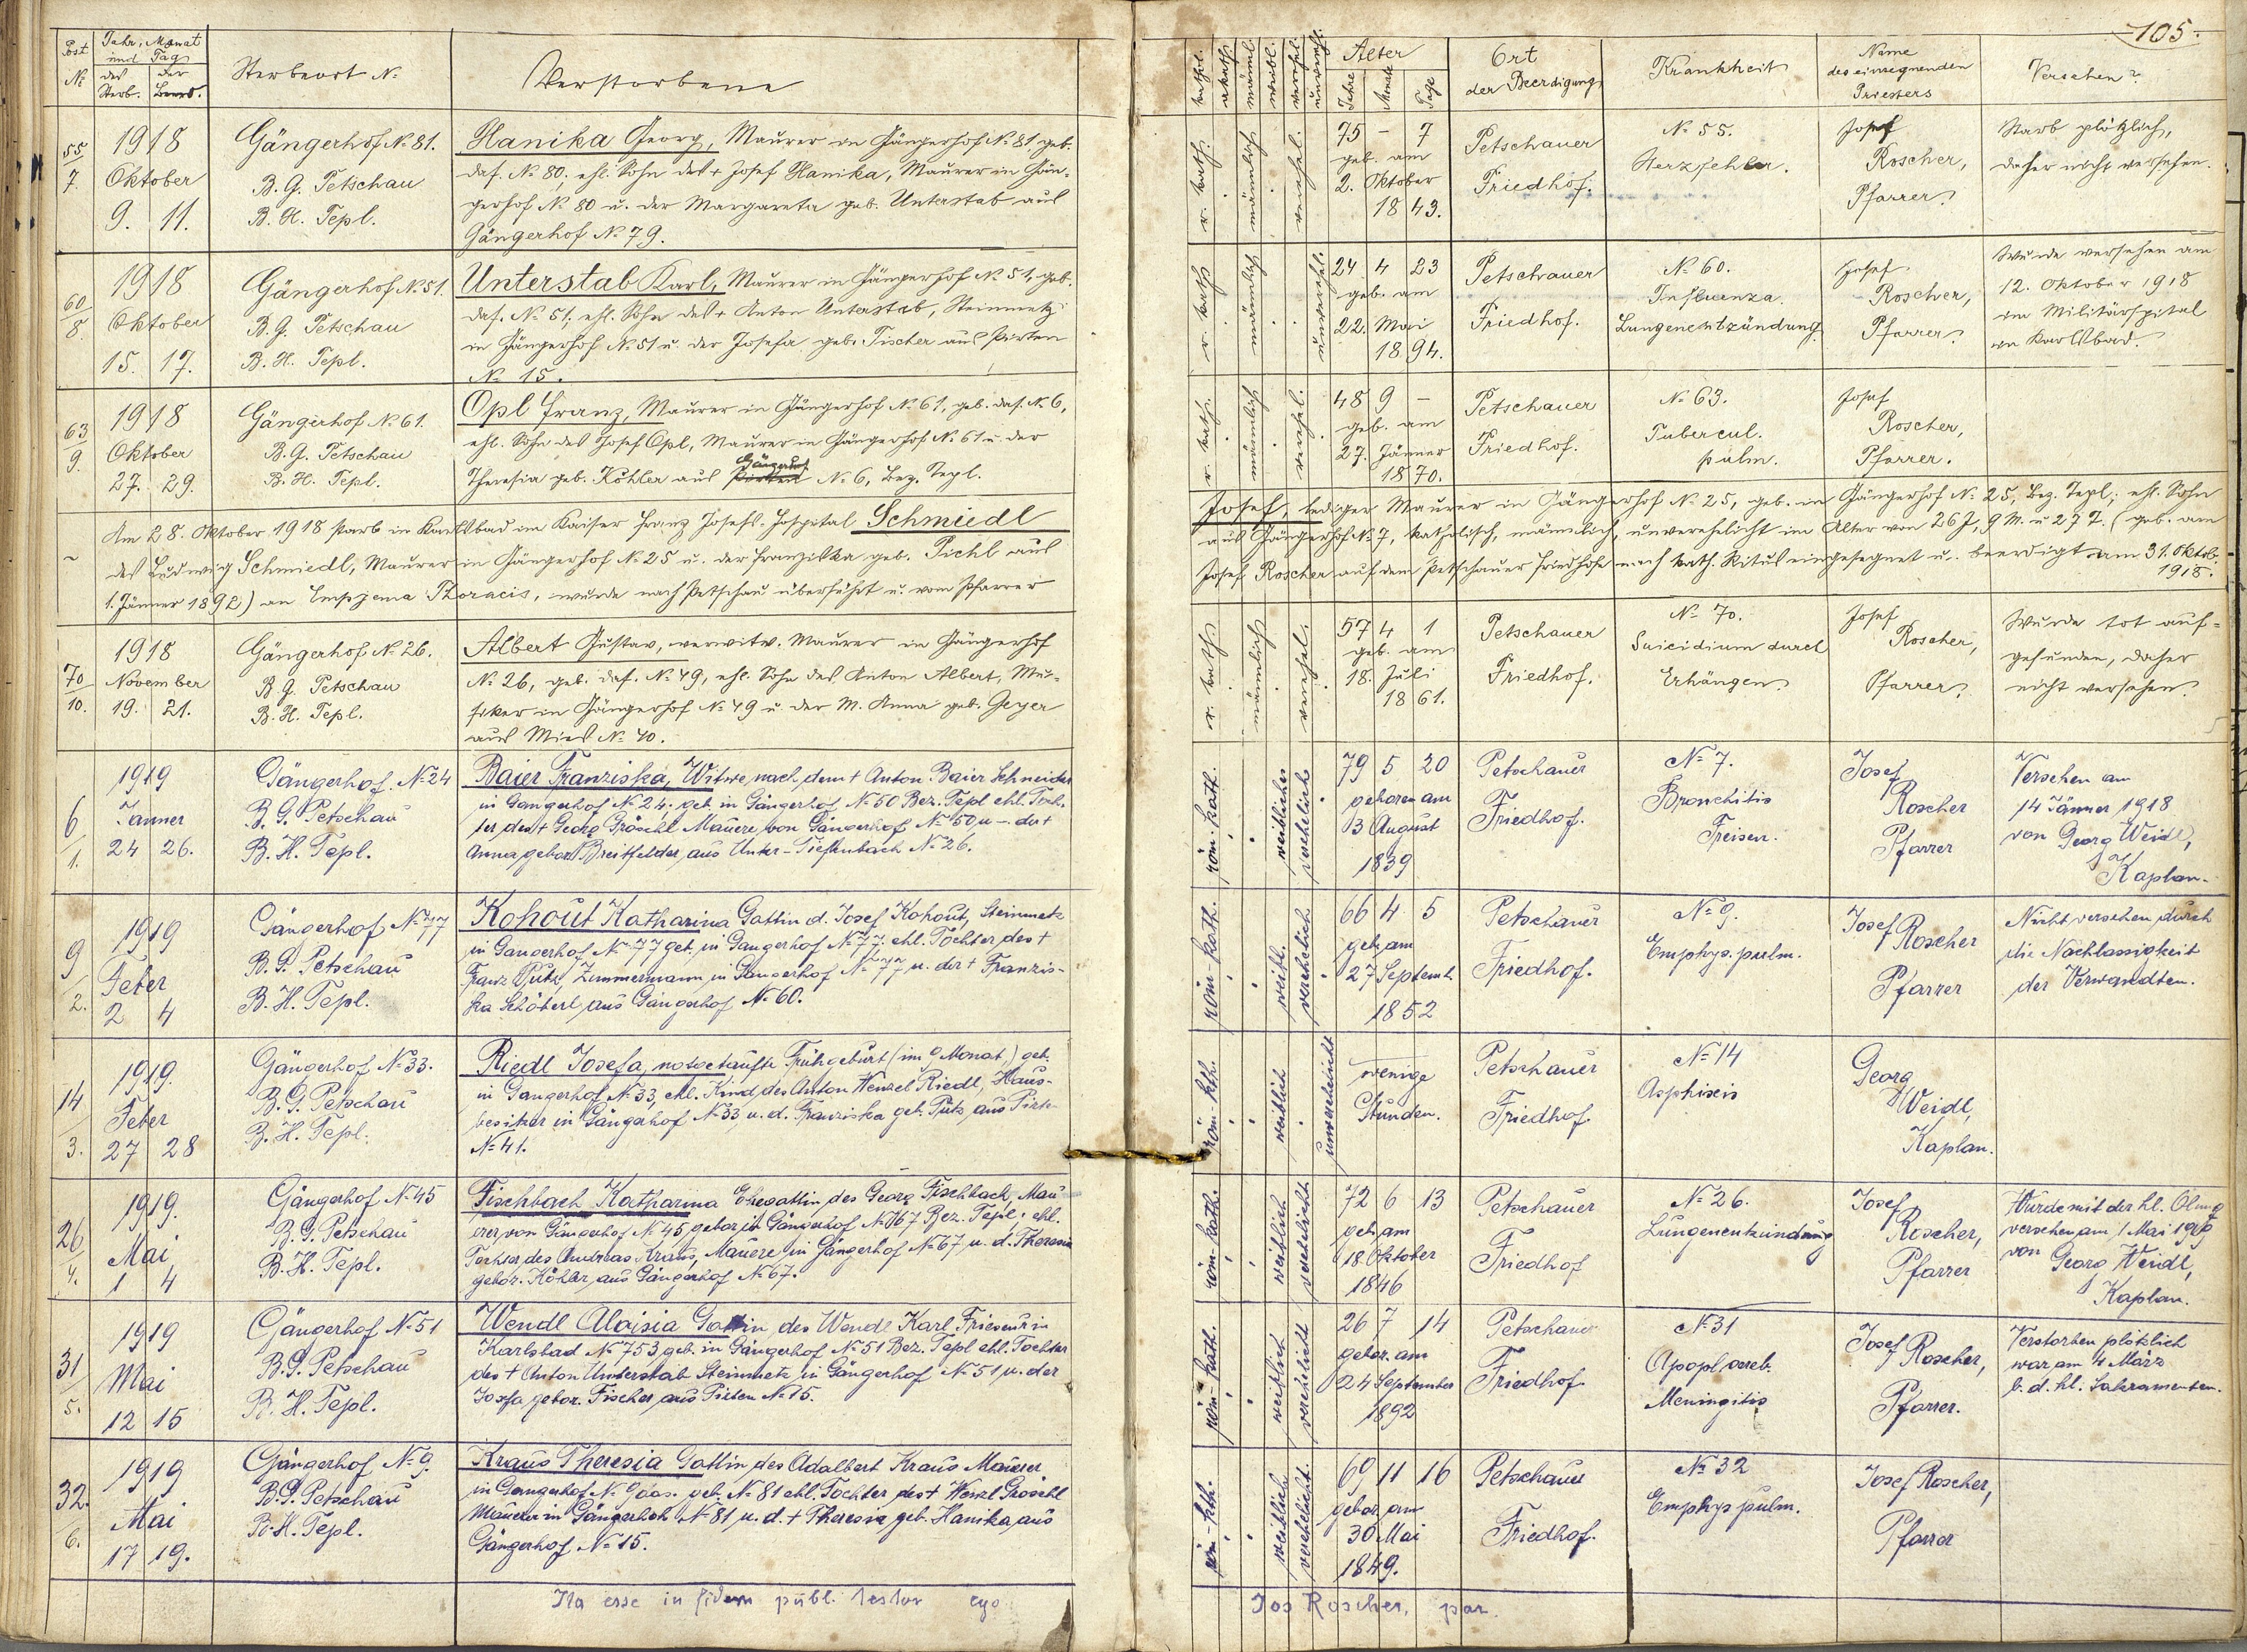 105.
Post
No
Jahr, Monat
und Tag
des Sterb.
der Beerd.
Sterbeort No
Verstorbene
kathol.
akath.
männl.
weibl.
verehel.
unvereh.
Alter
Jahre
Monate
Tage
Ort
der Beerdigung
Krankheit
Name
des einsegnenden
Priesters
Versehen?
55/7.
1918
Oktober
9. 11.
Gängerhof No 81.
B. G. Petschau
B. H. Tepl.
Hanika Georg, Maurer in Gängerhof No 81 geb.
das. No 80, ehl. Sohn des + Josef Hanika, Maurer in Gän-
gerhof No 80 u. der Margareta geb. Unterstab aus
Gängerhof No 79.
r. kath.
männlich
verehel.
75 - 7
geb. am
2. Oktober
1843.
Petschauer
Friedhof.
No 55.
Herzfehler.
Josef
Roscher,
Pfarrer.
Starb plötzlich,
daher nicht versehen.
60/8.
1918
Oktober
15. 17.
Gängerhof No 51.
B. G. Petschau
B. H. Tepl.
Unterstab Karl, Maurer in Gängerhof No 51, geb.
das. No 51; ehl. Sohn des + Anton Unterstab, Steinmetz
in Gängerhof No 51 u. der Josefa geb. Fischer aus Pirten
No 15.
r. kath
männlich
unverehel.
24 4 23
geb. am
22. Mai
1894.
Petschauer
Friedhof.
No 60.
Influenza.
Lungenentzündung.
Josef
Roscher,
Pfarrer.
Wurde versehen am
12. Oktober 1918
im Militärspital
in Karlsbad.
63/9.
1918
Oktober
27. 29.
Gängerhof No 61.
B. G. Petschau
B. H. Tepl.
Opl Franz, Maurer in Gängerhof No 61, geb. das. No 6,
ehl. Sohn des Josef Opl, Maurer in Gängerhof No 61 u. der
Gängerhof
Theresia geb. Köhler aus Pirten No 6, Bez. Tepl.
r. kath.
männlich
verehel.
48 9 -
geb. am
27. Jänner
1870.
Petschauer
Friedhof.
No 63.
Tubercul.
pulm.
Josef
Roscher,
Pfarrer.
Am 28. Oktober 1918 starb in Karlsbad im Kaiser Franz Josefs-Hospital Schmiedl
Josef, lediger Maurer in Gängerhof No 25, geb. in Gängerhof No 25, Bez. Tepl; ehl. Sohn
des Ludwig Schmiedl, Maurer in Gängerhof No 25 u. der Franziska geb. Pichl aus
aus Gängerhof No 7, katholisch, männlich, unverehelicht im Alter von 26 J, 9 M. u 27 T. (geb. am
1. Jänner 1892) an Empyema Thoracis, wurde nach Petschau überführt u. vom Pfarrer
Josef Roscher auf dem Petschauer Friedhofe nach kath. Ritus eingesegnet u. beerdigt am 31. Oktob.
1918.
70/10.
1918
November
19. 21.
Gängerhof No 26.
B. G. Petschau
B. H. Tepl.
Albert Gustav, verwitw. Maurer in Gängerhof
No 26, geb. das. No 49, ehl. Sohn des Anton Albert, Mu-
siker in Gängerhof No 49 u. der M. Anna geb. Geyer
aus Mies No 40.
r. kath
männlich
verehel.
57 4 1
geb. am
18. Juli
1861.
Petschauer
Friedhof.
No 70.
Suicidium durch
Erhängen.
Josef
Roscher,
Pfarrer.
Wurde tot auf-
gefunden, daher
nicht versehen.
6/1.
1919
Jänner
24 26.
Gängerhof. No 24
B. G. Petschau
B. H. Tepl.
Baier Franziska, Witwe nach dem + Anton Baier Schneider
in Gangerhof No 24; geb. in Gängerhof No 50 Bez. Tepl ehl. Toch-
ter des + Georg Gröschl Maurer von Gängerhof No 50 u - der +
Anna gebor. Breitfelder aus Unter-Tiefenbach No 26.
röm. kath.
weibliches
verehelicht
79 5 20
geboren am
3 August
1839
Petschauer
Friedhof.
No 7.
Bronchitis
Treisen.
Josef
Roscher
Pfarrer
Versehen am
14 Jänner 1918
von Georg Weidl,
Kaplan.
9/2.
1919
Feber
2 4
Gängerhof No 77
B. G. Petschau
B. H. Tepl.
Kohout Katharina Gattin d. Josef Kohout, Steinmetz
in Gangerhof No 77 geb. in Gangerhof No 77. ehl. Töchter des +
Franz Pütz, Zimmermann in Gängerhof No 77 u. der + Franzis-
ka Schöberl aus Gängerhof No 60.
röm kath.
weibl.
verehelich
66 4 5
geb. am
27 Septemb.
1852
Petschauer
Friedhof.
No 9.
Emphys. pulm.
Josef Roscher
Pfarrer
Nicht versehen durch
die Nachlassigkeit
der Verwandten.
14/3.
1919.
Feber
27 28
Gängerhof No 33.
B. G. Petschau
B. H. Tepl.
Riedl Josefa, notgetaufte Frühgeburt (im 9 Monat,) geb.
in Gangerhof No 33, ehl. Kind des Anton Wenzel Riedl, Haus-
besitzer in Gängerhof No 33 u. d. Franziska geb. Pütz aus Pirte-
No 41.
röm. kth.
weiblich
unverehelicht
wenige
Stunden.
Petschauer
Friedhof.
No 14
Asphixis
Georg
Weidl,
Kaplan.
26/4.
1919.
Mai
1 4
Gängerhof No 45
B. G. Petschau
B. H. Tepl.
Fischbach Katharina Ehegattin des Georg Fischbach, Mau-
erer von Gängerhof No 45, gebor in Gängerhof No 67 Bez. Tepl, ehl.
Tochter des Andreas Kraus, Mauere in Gängerhof No 67 u. d. Theresia
gebor. Köhler aus Gängerhof No 67.
röm. kath.
weiblich
verehelicht
72 6 13
geb. am
18. Oktober
1846
Petschauer
Friedhof
No 26.
Lungenentzündung
Josef
Roscher,
Pfarrer
Wurde mit der hl. Ölung
versehen am 1 Mai 1919
von Georg Weidl,
Kaplan.
31/5.
1919
Mai
12 15
Gängerhof No 51
B. G. Petschau
B. H. Tepl.
Wendl Aloisia Gattin des Wendl Karl Frieseur in
Karlsbad No 753, geb. in Gängerhof No 51 Bez. Tepl ehl. Tochter
des + Anton Unterstab Steinmetz in Gängerhof No 51 u. der
Josefa gebor. Fischer aus Pirten No 15.
röm. kath.
weiblich
verehelicht
26 7 14
gebor. am
24 September
1892
Petschauer
Friedhof
No 31
Apopl. cereb.
Meningitis
Josef Roscher,
Pfarrer.
Verstorben plötzlich
war am 4 März
b. d. hl. Sakramenten.
32./6.
1919
Mai
17 19.
Gängerhof No 9.
B. G. Petschau
B. H. Tepl.
Kraus Theresia Gattin des Adalbert Kraus Maurer
in Gangerhof No 9 das. geb. No 81 ehl. Tochter des + Wenzl Gröschl
Maurer in Gängerhof No 81 u. d. + Theresia geb. Hanika aus
Gängerhof No 15.
röm. kth.
weiblich
verehelicht.
69 11 16
gebor. am
30 Mai
1849.
Petschauer
Friedhof.
No 32
Emphys pulm.
Josef Roscher,
Pfarrer
Ita esse in fidem publ. testor ego
Jos Roscher, par.